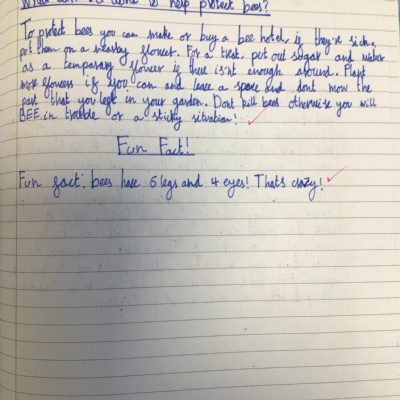 What can be done to help protect bees?
To protect bees you can make or buy a bee hotel, if they're sick,
put them on a nearby flower. For a treat, put out sugar and water
as a temparary flower if there isn't enough around. Plant
more flowers if you can and leave a space and dont mow the
part that you left in your garden. Dont kill bees otherwise you will
BEE in trouble or a sticky situation!
Fun Fact!
Fun fact: bees have 6 legs and 4 eyes! That's crazy!